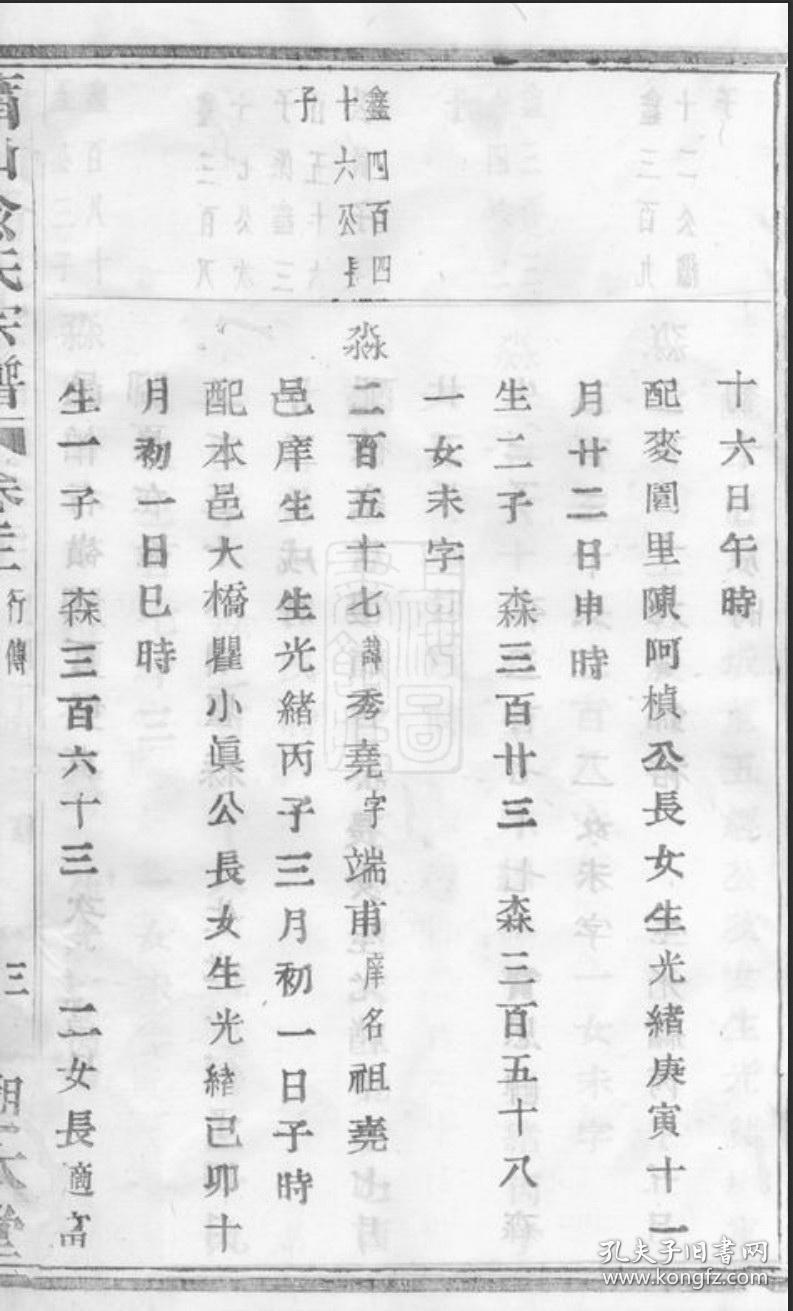 鑫四百四
十六公長
子
十六日午時
配麥園里陳阿楨公長女生光緒庚寅十一
月廿二日申時
生二子 森三百廿三 森三百五十八
一女未字
淼二百五十七諱秀堯字端甫庠名祖堯
邑庠生生光緒丙子三月初一日子時
配本邑大橋瞿小眞公長女生光緒己卯十
月初一日巳時
生一子 森三百六十三 二女長適
氏宗譜
行傳
三
孔夫子旧书网
www.kongfz.com